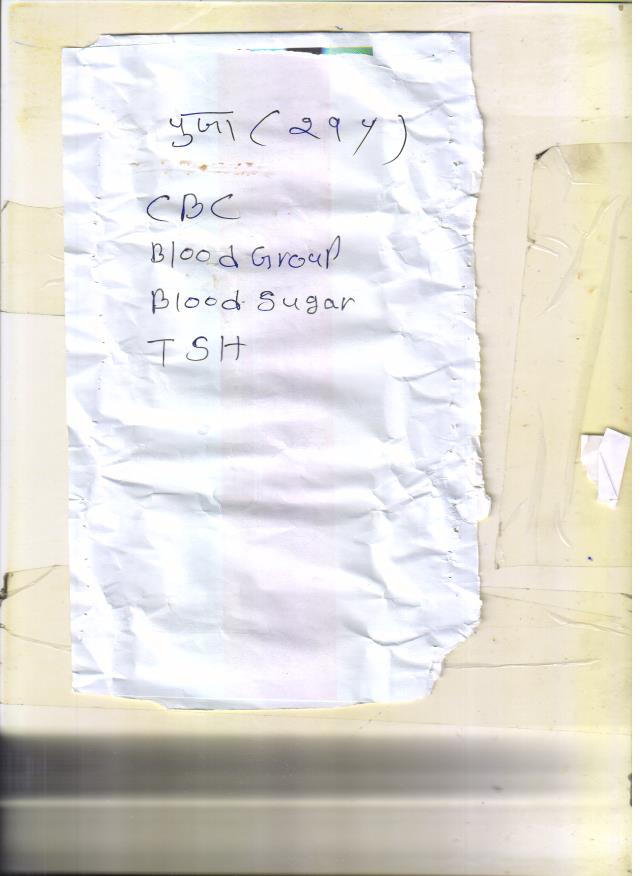 पुजा (29y)
CBC
Blood Group
Blood Sugar
TSH